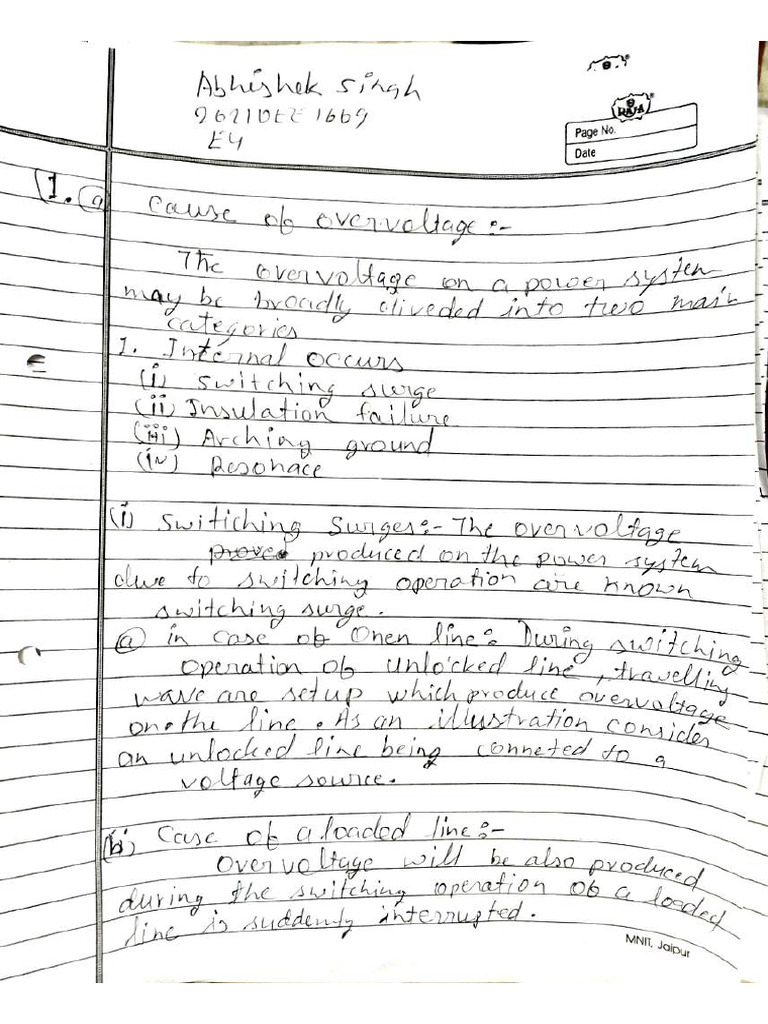 Abhishek Singh
E4
RAJA
Page No.
Date
1. (a) Cause of overvoltage :-
The overvoltage on a power system
may be broadly diveded into two main
categories
1. Internal occurs
(i) switching surge
(ii) Insulation failure
(iii) Arching ground
(iv) Resonace
(i) Switiching Surges:- The overvoltage
produced on the power system
due to switching operation are known
switching surge.
(a) in case of Onen line:- During switching
operation of unlocked line, travelling
wave are setup which produce overvoltage
on the line. As an illustration consider
an unlocked line being conneted to a
voltage source.
(b) Case of a loaded line:-
overvoltage will be also produced
during the switching operation of a loaded
line is suddenly interrupted.
MNIT, Jaipur